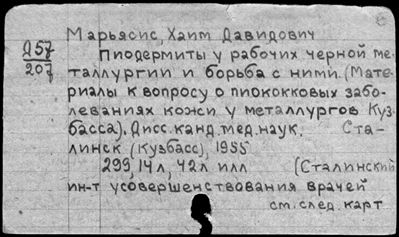 Марьясис, Хаим Давидович
Д57
207
Пиодермиты у рабочих черной ме-
таллургии и борьба с ними. (Мате-
риалы к вопросу о пиококковых забо-
леваниях кожи у металлургов Куз-
басса). Дисс. канд. мед. наук. Ста-
линск (Кузбасс), 1955
299, 14 л, 42 л. илл (Сталинский
ин-т усовершенствования врачей
см. след. карт